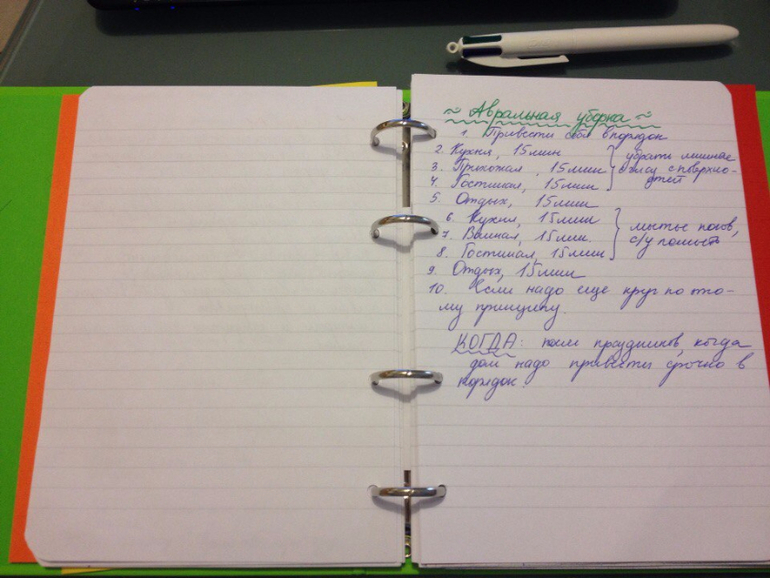 ~ Авральная уборка ~
1. Привести себя в порядок
2. Кухня, 15 мин
3. Прихожая, 15 мин
4. Гостиная, 15 мин
убрать лишнее
сразу с поверхно-
стей
5. Отдых, 15 мин
6. Кухня, 15 мин
7. Ванная, 15 мин.
8. Гостиная, 15 мин
мытье полов,
с/у помыть
9. Отдых, 15 мин
10. Если надо еще круг по это-
му принципу.
КОГДА: после праздников, когда
дом надо привести срочно в
порядок.